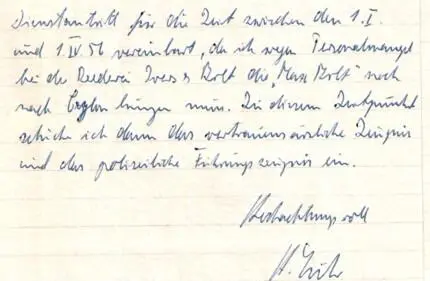 Dienstantritt für die Zeit zwischen den 1.I.
und 1.IV 56 vereinbart, da ich wegen Personalmangel
bei der Reederei & die "Max" noch
nach Ceylon bringen muss. Zu diesem Zeitpunkt
schicke ich dann das vertrauensärztliche Zeugnis
und das polizeiliche Führungszeugnis ein.
Hochachtungsvoll
H.